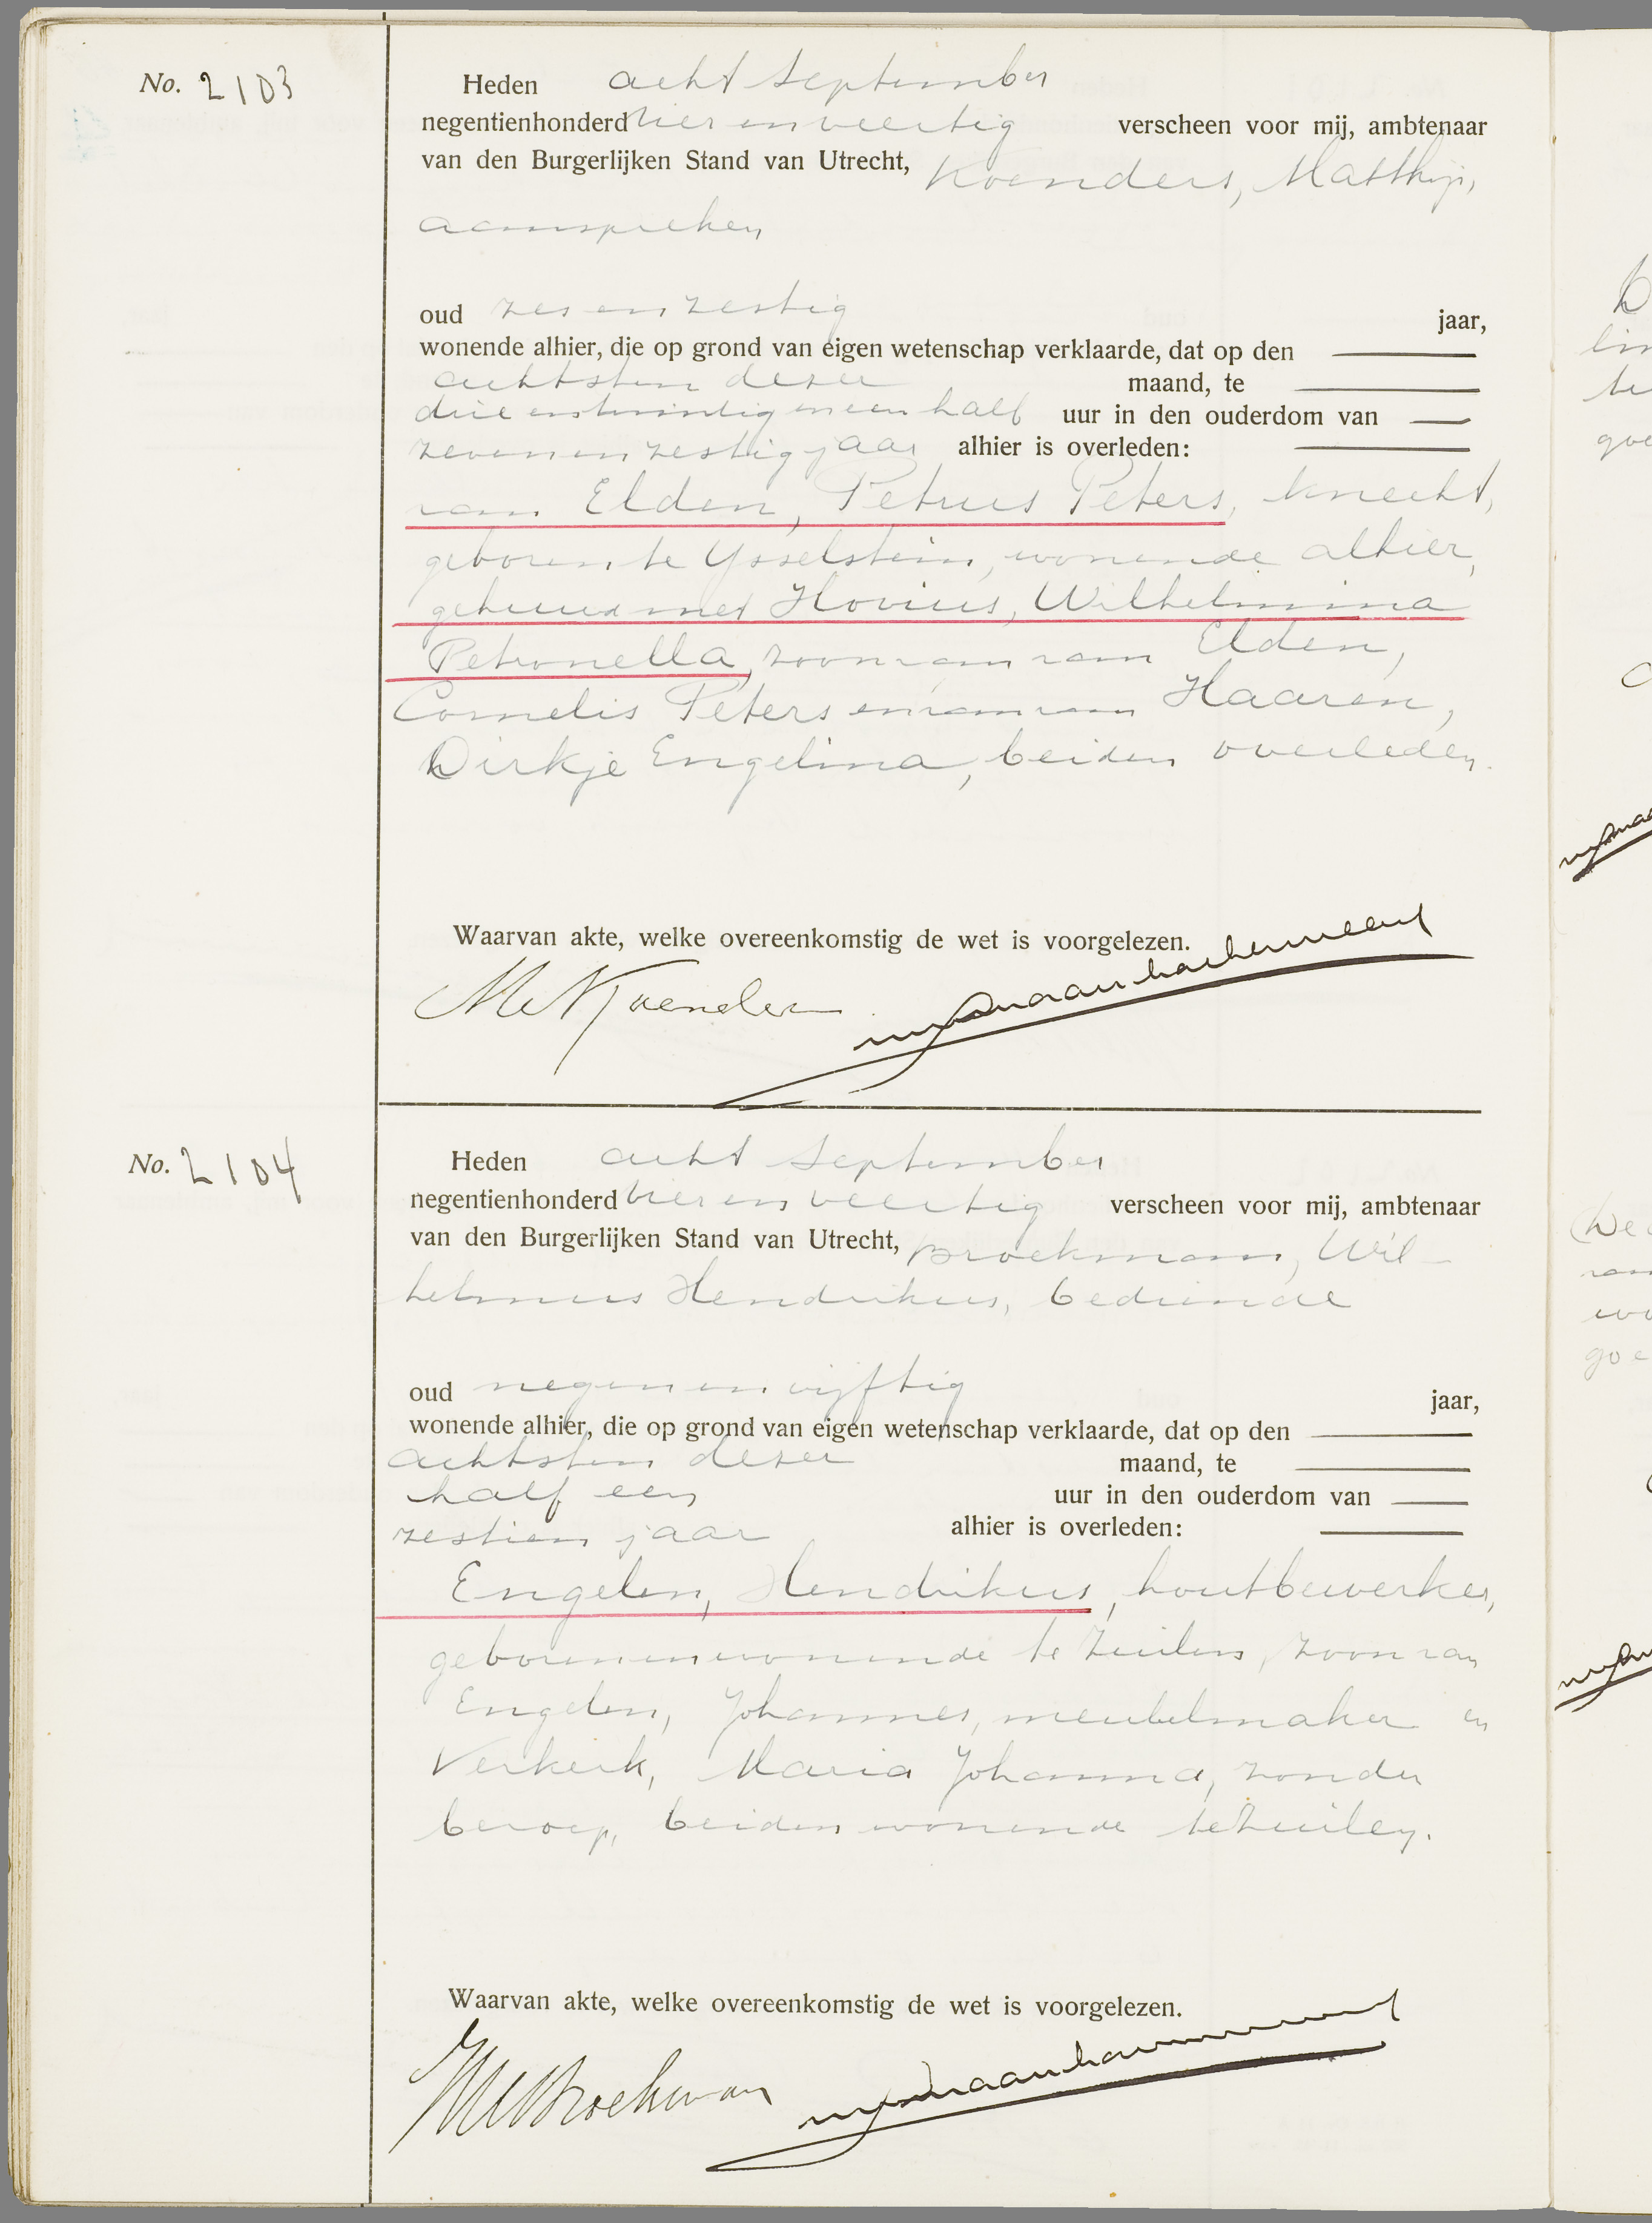 No. 2103
Heden acht september
negentienhonderd vier en veertig verscheen voor mij, ambtenaar
van den Burgerlijken Stand van Utrecht, Koenders, Matthijs,
aanspreker
oud zes en zestig jaar,
wonende alhier, die op grond van eigen wetenschap verklaarde, dat op den
achtsten dezer maand, te
drie en twintig en een half uur in den ouderdom van
zeven en zestig jaar alhier is overleden:
van Elden, Petrus Peters, knecht,
geboren te Ysselstein, wonende alhier,
gehuwd met Hovius, Wilhelmina
Petronella, zoon van van Elden,
Cornelis Peters en van van Haaren,
Dirkje Engelina, beiden overleden.
Waarvan akte, welke overeenkomstig de wet is voorgelezen.
M Koenders
No. 2104
Heden acht september
negentienhonderd vier en veertig verscheen voor mij, ambtenaar
van den Burgerlijken Stand van Utrecht, Broekman, Wil-
helmus Hendrikus, bediende
oud negen en vijftig jaar,
wonende alhier, die op grond van eigen wetenschap verklaarde, dat op den
achtsten dezer maand, te
half een uur in den ouderdom van
zestien jaar alhier is overleden:
Engelen, Hendrikus, houtbewerker,
geboren en wonende te Zuilen, zoon van
Engelen, Johannes, meubelmaker en
Verkerk, Maria Johanna, zonder
beroep, beiden wonende te Zuilen.
Waarvan akte, welke overeenkomstig de wet is voorgelezen.
WH Broekman